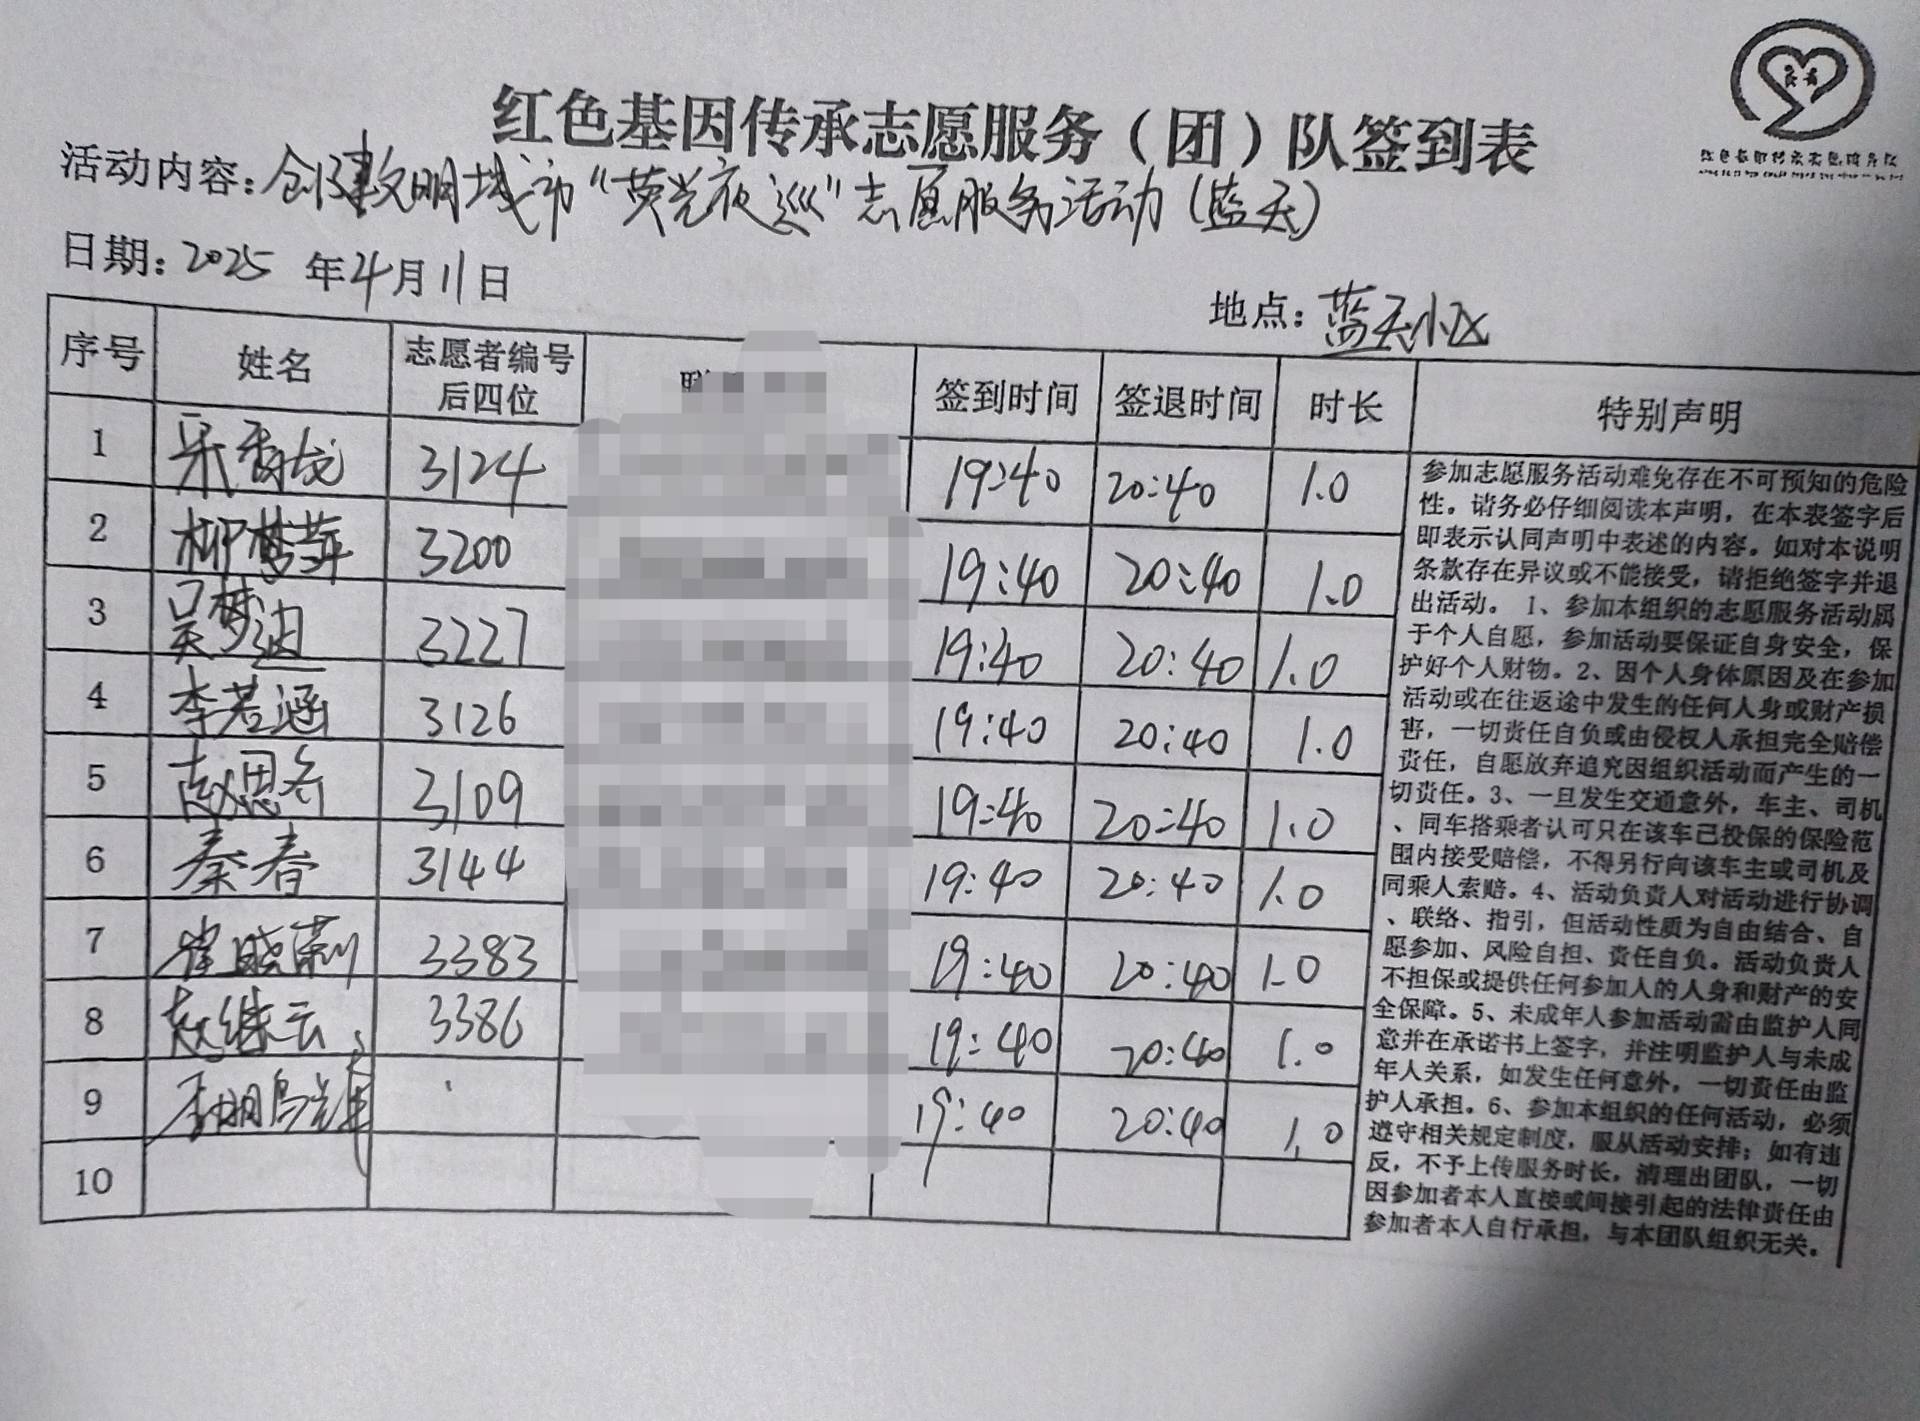 红色基因传承志愿服务（团）队签到表
活动内容：创建文明城市“荧光夜巡”志愿服务活动（蓝天）
日期：2025 年4月11日
地点：蓝天小区
序号 姓名 志愿者编号后四位 联 签到时间 签退时间 时长 特别声明
1 3124 19:40 20:40 1.0
2 柳梦萍 3200 19:40 20:40 1.0
3 吴梦迪 3227 19:40 20:40 1.0
4 李若涵 3126 19:40 20:40 1.0
5 赵思 3109 19:40 20:40 1.0
6 秦春 3144 19:40 20:40 1.0
7 崔晓莉 3383 19:40 20:40 1.0
8 赵继云 3386 19:40 20:40 1.0
9 19:40 20:40 1.0
10
参加志愿服务活动难免存在不可预知的危险
性。请务必仔细阅读本声明，在本表签字后
即表示认同声明中表述的内容。如对本说明
条款存在异议或不能接受，请拒绝签字并退
出活动。 1、参加本组织的志愿服务活动属
于个人自愿，参加活动要保证自身安全，保
护好个人财物。2、因个人身体原因及在参加
活动或在往返途中发生的任何人身或财产损
害，一切责任自负或由侵权人承担完全赔偿
责任，自愿放弃追究因组织活动而产生的一
切责任。3、一旦发生交通意外，车主、司机
、同车搭乘者认可只在该车已投保的保险范
围内接受赔偿，不得另行向该车主或司机及
同乘人索赔。4、活动负责人对活动进行协调
、联络、指引，但活动性质为自由结合、自
愿参加、风险自担、责任自负。活动负责人
不担保或提供任何参加人的人身和财产的安
全保障。5、未成年人参加活动需由监护人同
意并在承诺书上签字，并注明监护人与未成
年人关系，如发生任何意外，一切责任由监
护人承担。6、参加本组织的任何活动，必须
遵守相关规定制度，服从活动安排；如有违
反，不予上传服务时长，清理出团队，一切
因参加者本人直接或间接引起的法律责任由
参加者本人自行承担，与本团队组织无关。